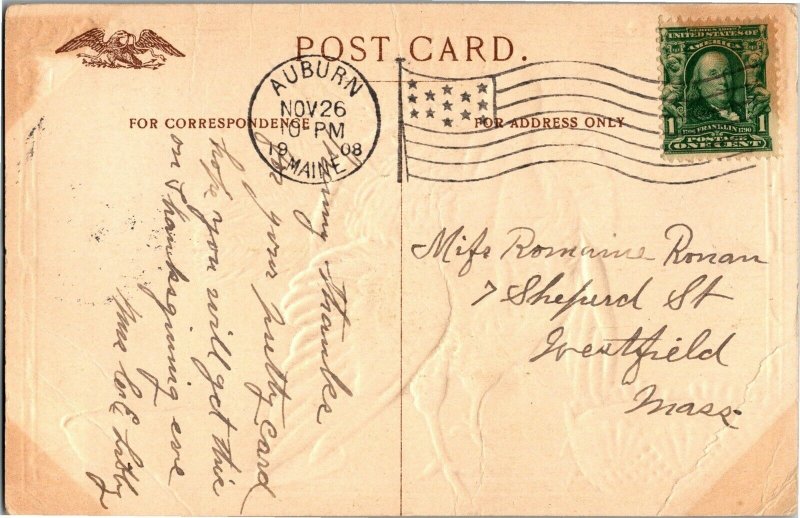 POST CARD.
AUBURN
NOV 26
10 PM
1908
MAINE
SERIES 1902
UNITED STATES OF
AMERICA
1706 FRANKLIN 1790
1 1
POSTAGE
ONE CENT
FOR CORRESPONDENCE
FOR ADDRESS ONLY
Many thanks
for your pretty card
hope you will get this
on Thanksgiving eve
Mrs Libby
Miss Romaine Ronan
7 Sheperd St
Westfield
Mass.